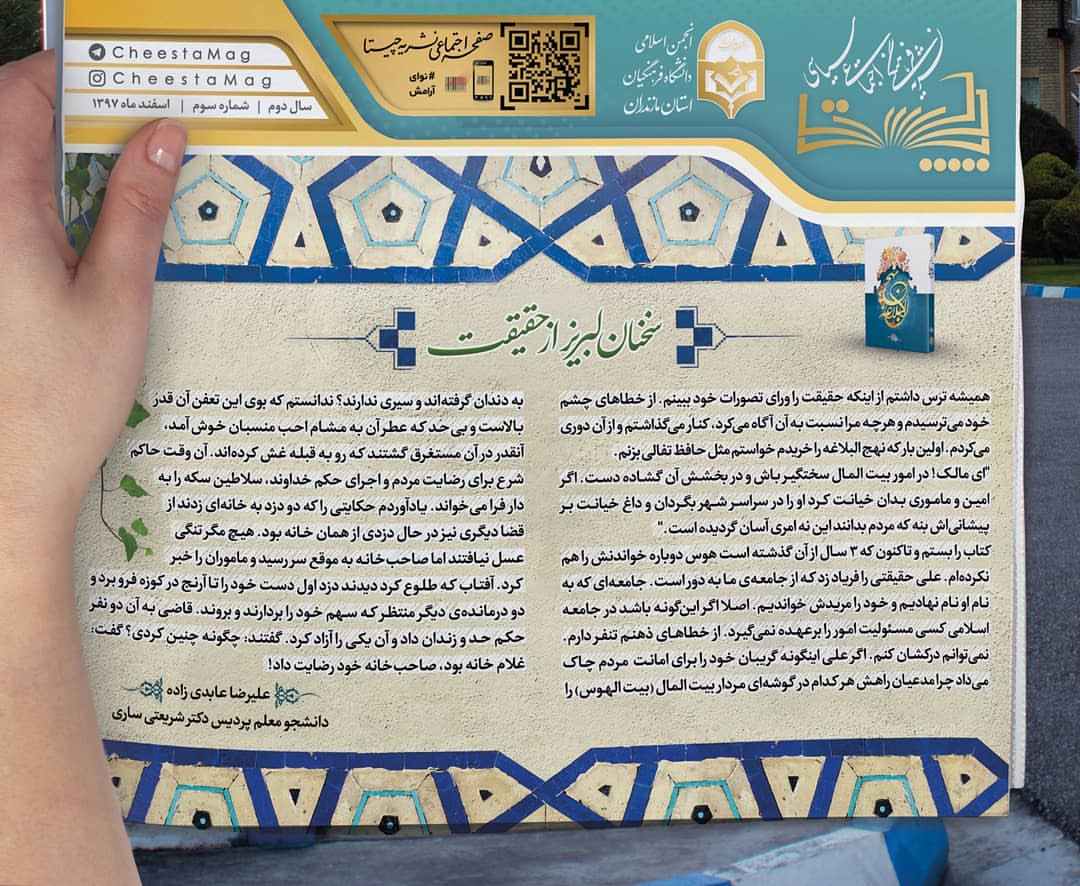 CheestaMag
CheestaMag
سال دوم | شماره سوم | اسفند ماه ۱۳۹۷
صفحه اجتماعی نشریه چیستا
#نوای
آرامش
انجمن اسلامی
دانشگاه فرهنگیان
استان مازندران
چیستا
سخنان لبریز از حقیقت
همیشه ترس داشتم از اینکه حقیقت را ورای تصورات خود ببینم. از خطاهای چشم
خود می‌ترسیدم و هرچه مرا نسبت به آن آگاه می‌کرد، کنار می‌گذاشتم و از آن دوری
می‌کردم. اولین بار که نهج البلاغه را خریدم خواستم مثل حافظ تفالی بزنم.
"ای مالک! در امور بیت المال سختگیر باش و در بخشش آن گشاده دست. اگر
امین و ماموری بدان خیانت کرد او را در سراسر شهر بگردان و داغ خیانت بر
پیشانی‌اش بنه که مردم بدانند این نه امری آسان گردیده است."
کتاب را بستم و تاکنون که ۳ سال از آن گذشته است هوس دوباره خواندنش را هم
نکرده‌ام. علی حقیقتی را فریاد زد که از جامعه‌ی ما به دور است. جامعه‌ای که به
نام او نام نهادیم و خود را مریدش خواندیم. اصلا اگر این‌گونه باشد در جامعه
اسلامی کسی مسئولیت امور را برعهده نمی‌گیرد. از خطاهای ذهنم تنفر دارم.
نمی‌توانم درکشان کنم. اگر علی اینگونه گریبان خود را برای امانت مردم چاک
می‌داد چرا مدعیان راهش هر کدام در گوشه‌ای مردار بیت المال (بیت الهوس) را
به دندان گرفته‌اند و سیری ندارند؟ ندانستم که بوی این تعفن آن قدر
بالاست و بی‌حد که عطر آن به مشام احب منسبان خوش آمد،
آنقدر در آن مستغرق گشتند که رو به قبله غش کرده‌اند. آن وقت حاکم
شرع برای رضایت مردم و اجرای حکم خداوند، سلاطین سکه را به
دار فرا می‌خواند. یادآوردم حکایتی را که دو دزد به خانه‌ای زدند از
قضا دیگری نیز در حال دزدی از همان خانه بود. هیچ مگر تنگی
عسل نیافتند اما صاحب‌خانه به موقع سر رسید و ماموران را خبر
کرد. آفتاب که طلوع کرد دیدند دزد اول دست خود را تا آرنج در کوزه فرو برد و
دو درمانده‌ی دیگر منتظر که سهم خود را بردارند و بروند. قاضی به آن دو نفر
حکم حد و زندان داد و آن یکی را آزاد کرد. گفتند: چگونه چنین کردی؟ گفت:
غلام خانه بود، صاحب‌خانه خود رضایت داد!
علیرضا عابدی زاده
دانشجو معلم پردیس دکتر شریعتی ساری